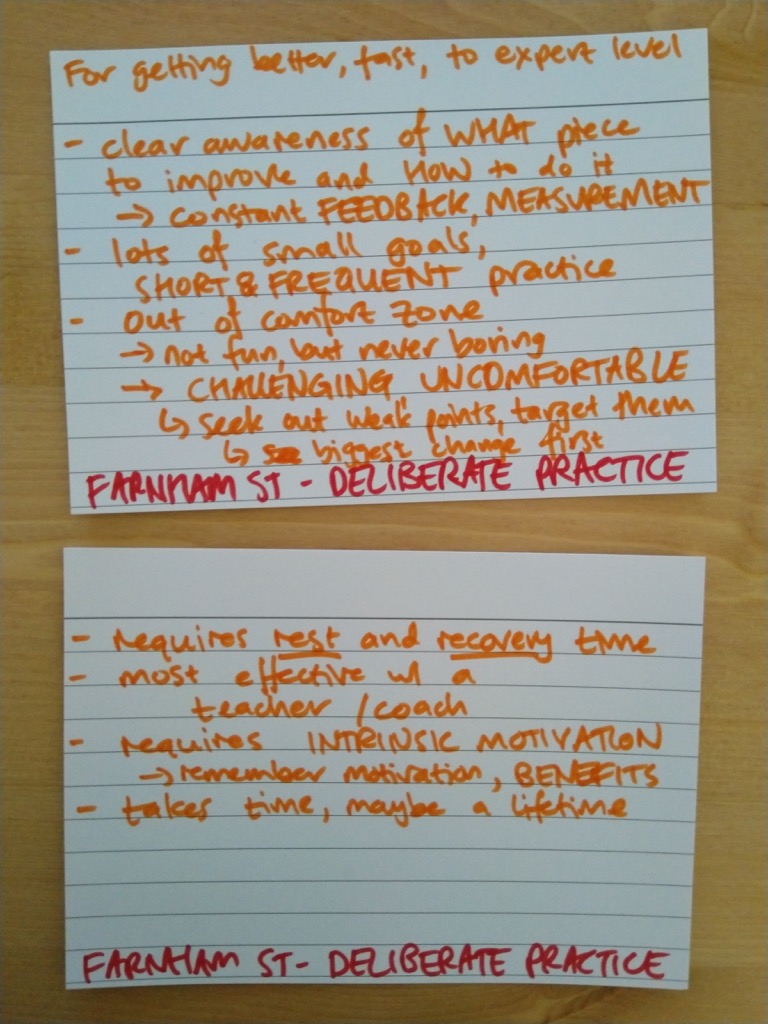 For getting better, fast, to expert level
- clear awareness of WHAT piece
to improve and HOW to do it
→ constant FEEDBACK, MEASUREMENT
- lots of small goals,
SHORT & FREQUENT practice
- out of comfort zone
→ not fun, but never boring
→ CHALLENGING UNCOMFORTABLE
↳ seek out weak points, target them
↳ biggest change first
FARNHAM ST - DELIBERATE PRACTICE
- requires rest and recovery time
- most effective w/ a
teacher / coach
- requires INTRINSIC MOTIVATION
→ remember motivation, BENEFITS
- takes time, maybe a lifetime
FARNHAM ST - DELIBERATE PRACTICE